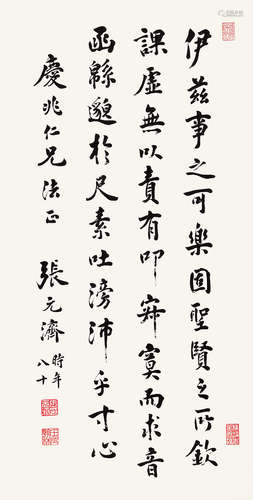 伊茲事之可樂固聖賢之所欽
課虛無以責有叩寂寞而求音
函緜邈於尺素吐滂沛乎寸心
慶兆仁兄法正
張元濟時年八十